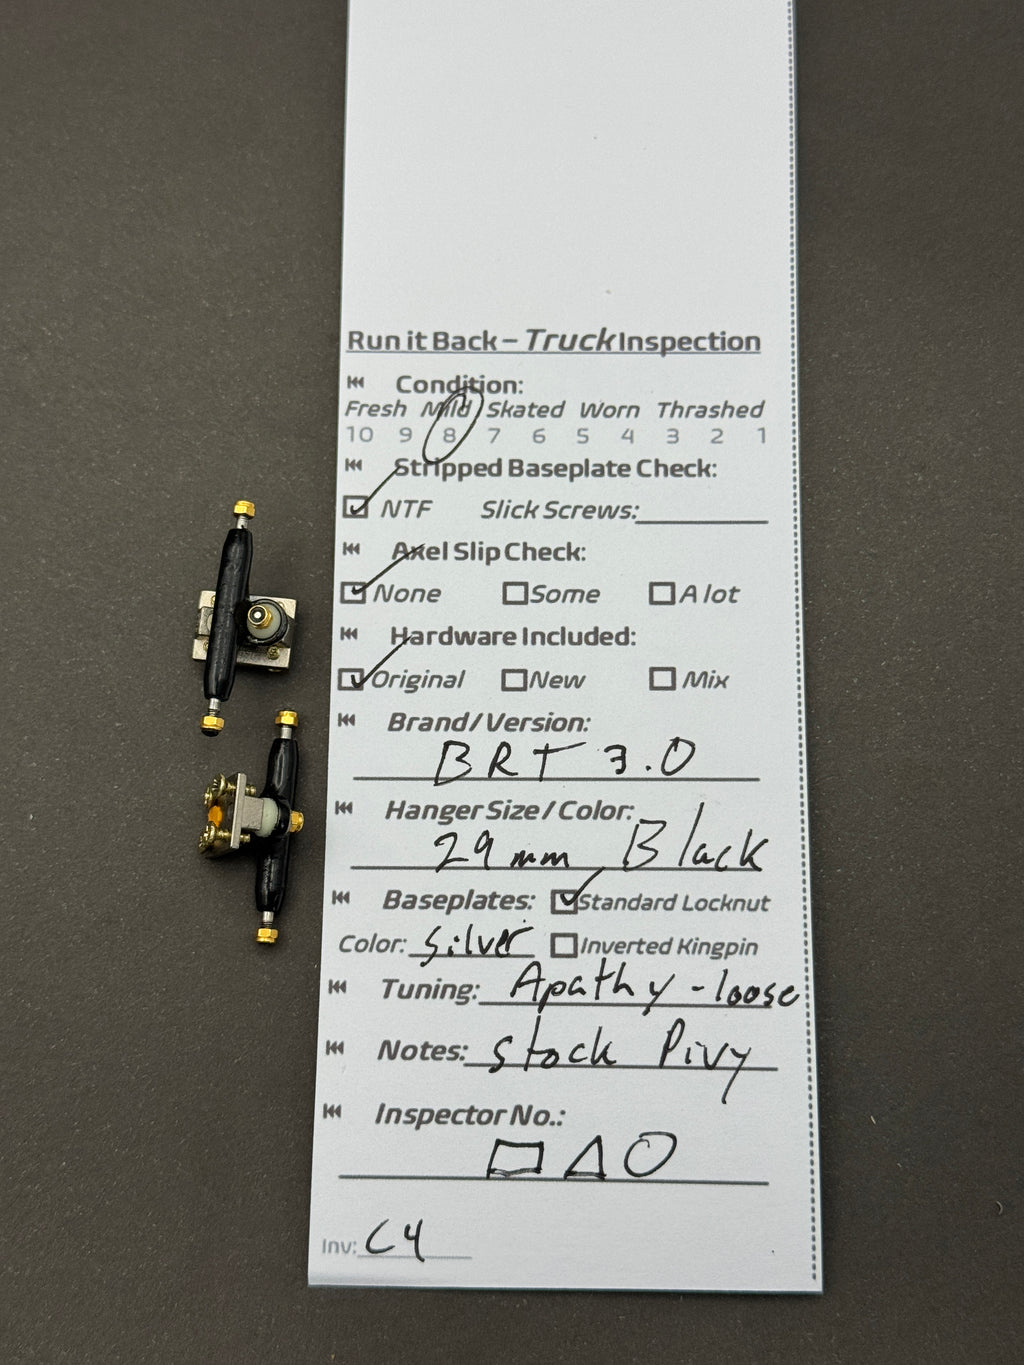 Run it Back – Truck Inspection
Condition:
Fresh Mild Skated Worn Thrashed
10 9 8 7 6 5 4 3 2 1
Stripped Baseplate Check:
NTF Slick Screws:
Axel Slip Check:
None Some A lot
Hardware Included:
Original New Mix
Brand/Version:
BRT 3.0
Hanger Size/Color:
29mm Black
Baseplates: Standard Locknut
Color: Silver Inverted Kingpin
Tuning: Apathy - loose
Notes: stock Pivy
Inspector No.:
Inv: C4